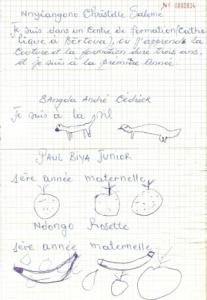 Nº 0002834
Nnyiangono Christelle Salome
Je suis dans un Centre de formation (Catho
lique à Bertoua), ou j'apprends la
Couture et la
dure trois ans,
et je suis à la première année.
Bangda André Cédrick
Je suis à la
PAUL BIYA JUNIOR
1ère année maternelle
Ndongo Rosette
1ère année maternelle